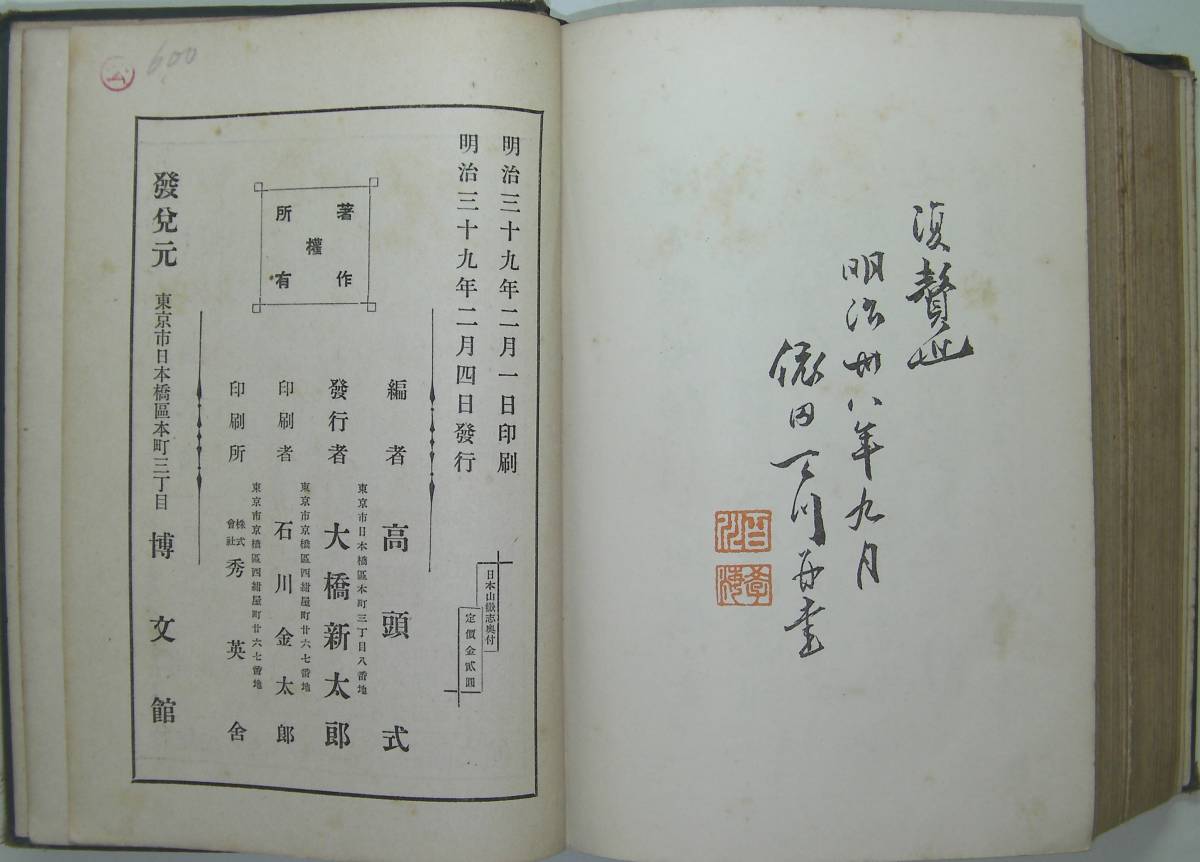 復贅也
明治卅八年九月
依田百川再書
明治三十九年二月一日印刷
明治三十九年二月四日發行
日本山嶽志奥付
定價金貳圓
著作
權
所有
編者 高頭式
東京市日本橋區本町三丁目八番地
發行者 大橋新太郎
東京市京橋區西紺屋町廿六七番地
印刷者 石川金太郎
東京市京橋區西紺屋町廿六七番地
印刷所 株式會社 秀英舍
發兌元 東京市日本橋區本町三丁目 博文館
600